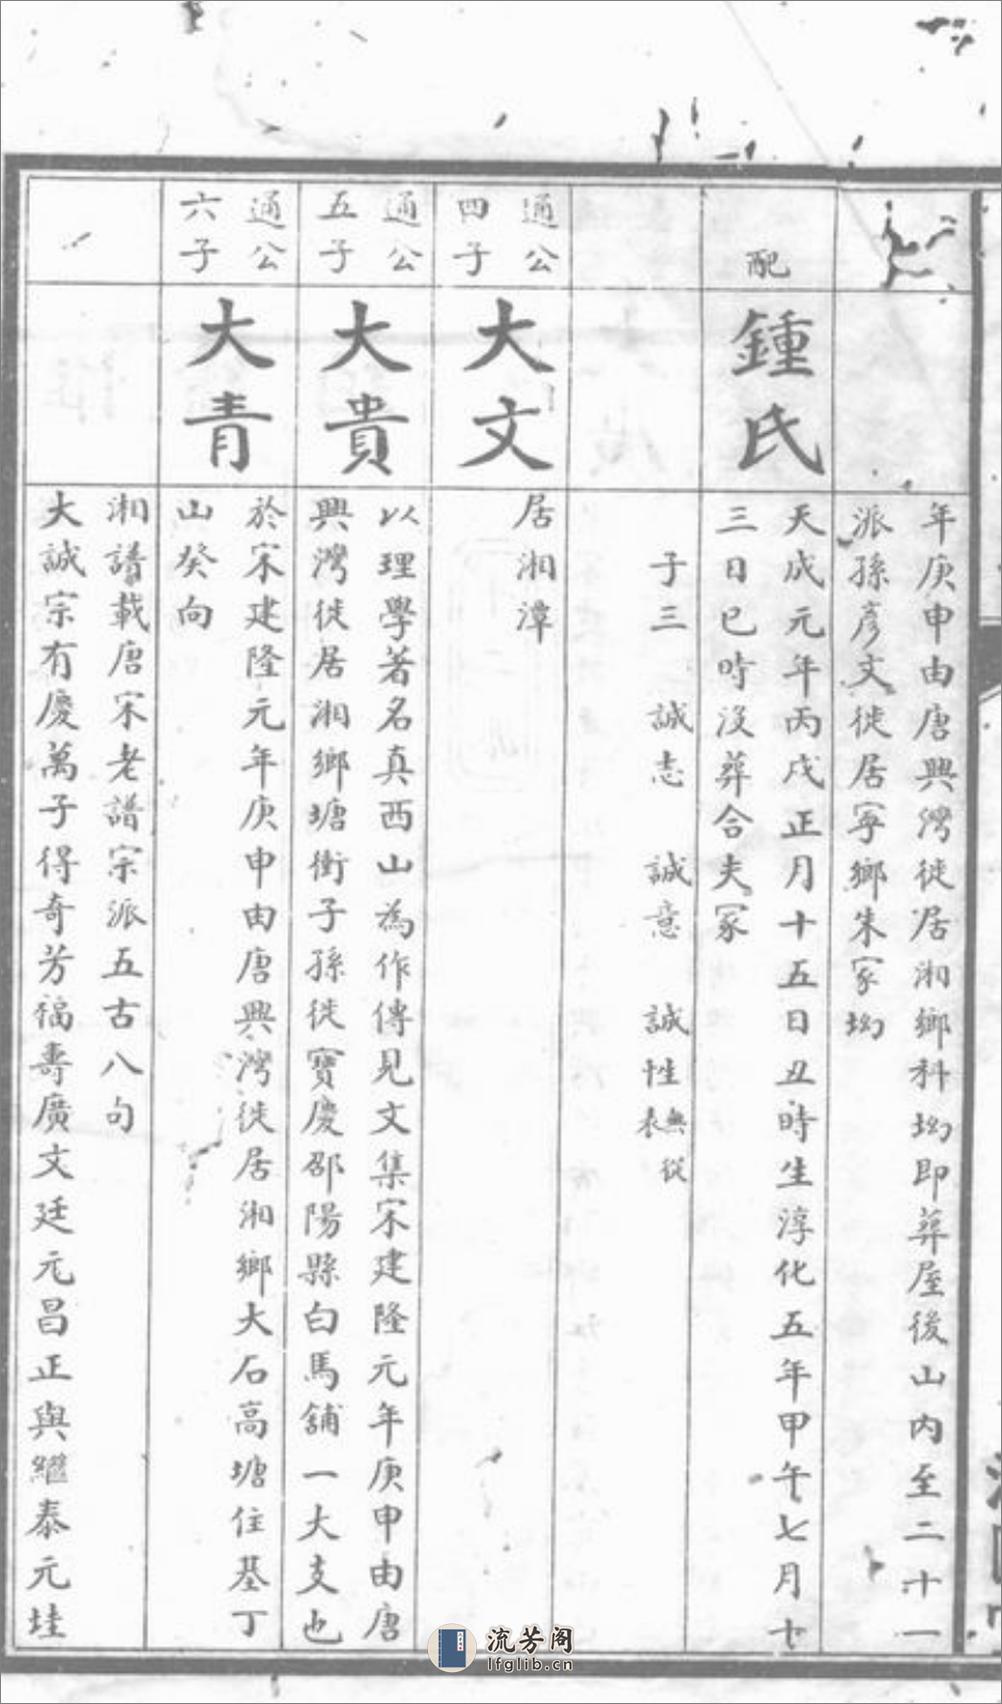 年庚申由唐興灣徙居湘鄉科坳即葬屋後山內至二十一
派孫彥文徙居寧鄉朱家坳
配
鍾氏
天成元年丙戌正月十五日丑時生淳化五年甲午七月十
三日巳時沒葬合夫冢
子三 誠志 誠意 誠性無從表
通公
四子
大文
居湘潭
通公
五子
大貴
以理學著名真西山為作傳見文集宋建隆元年庚申由唐
興灣徙居湘鄉塘衝子孫徙寶慶邵陽縣白馬舖一大支也
通公
六子
大青
於宋建隆元年庚申由唐興灣徙居湘鄉大石高塘住基丁
山癸向
湘譜載唐宋老譜宗派五古八句
大誠宗有慶萬子得奇芳福壽廣文廷元昌正與繼泰元娃
流芳阁
lfglib.cn